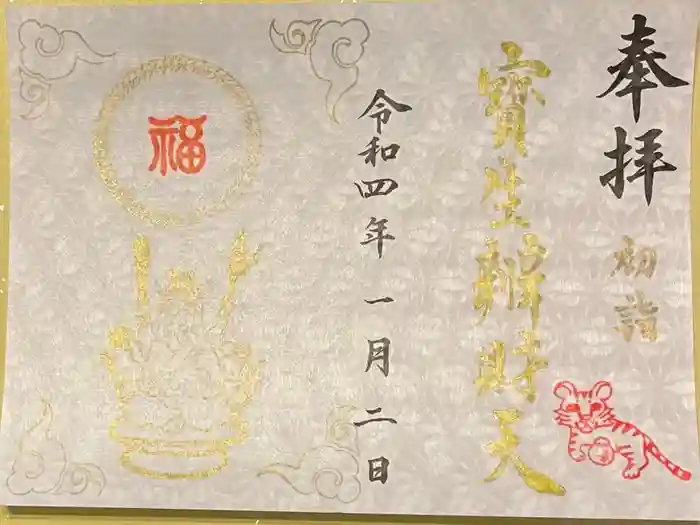 奉拝
初詣
寶生辨財天
令和四年一月二日
福